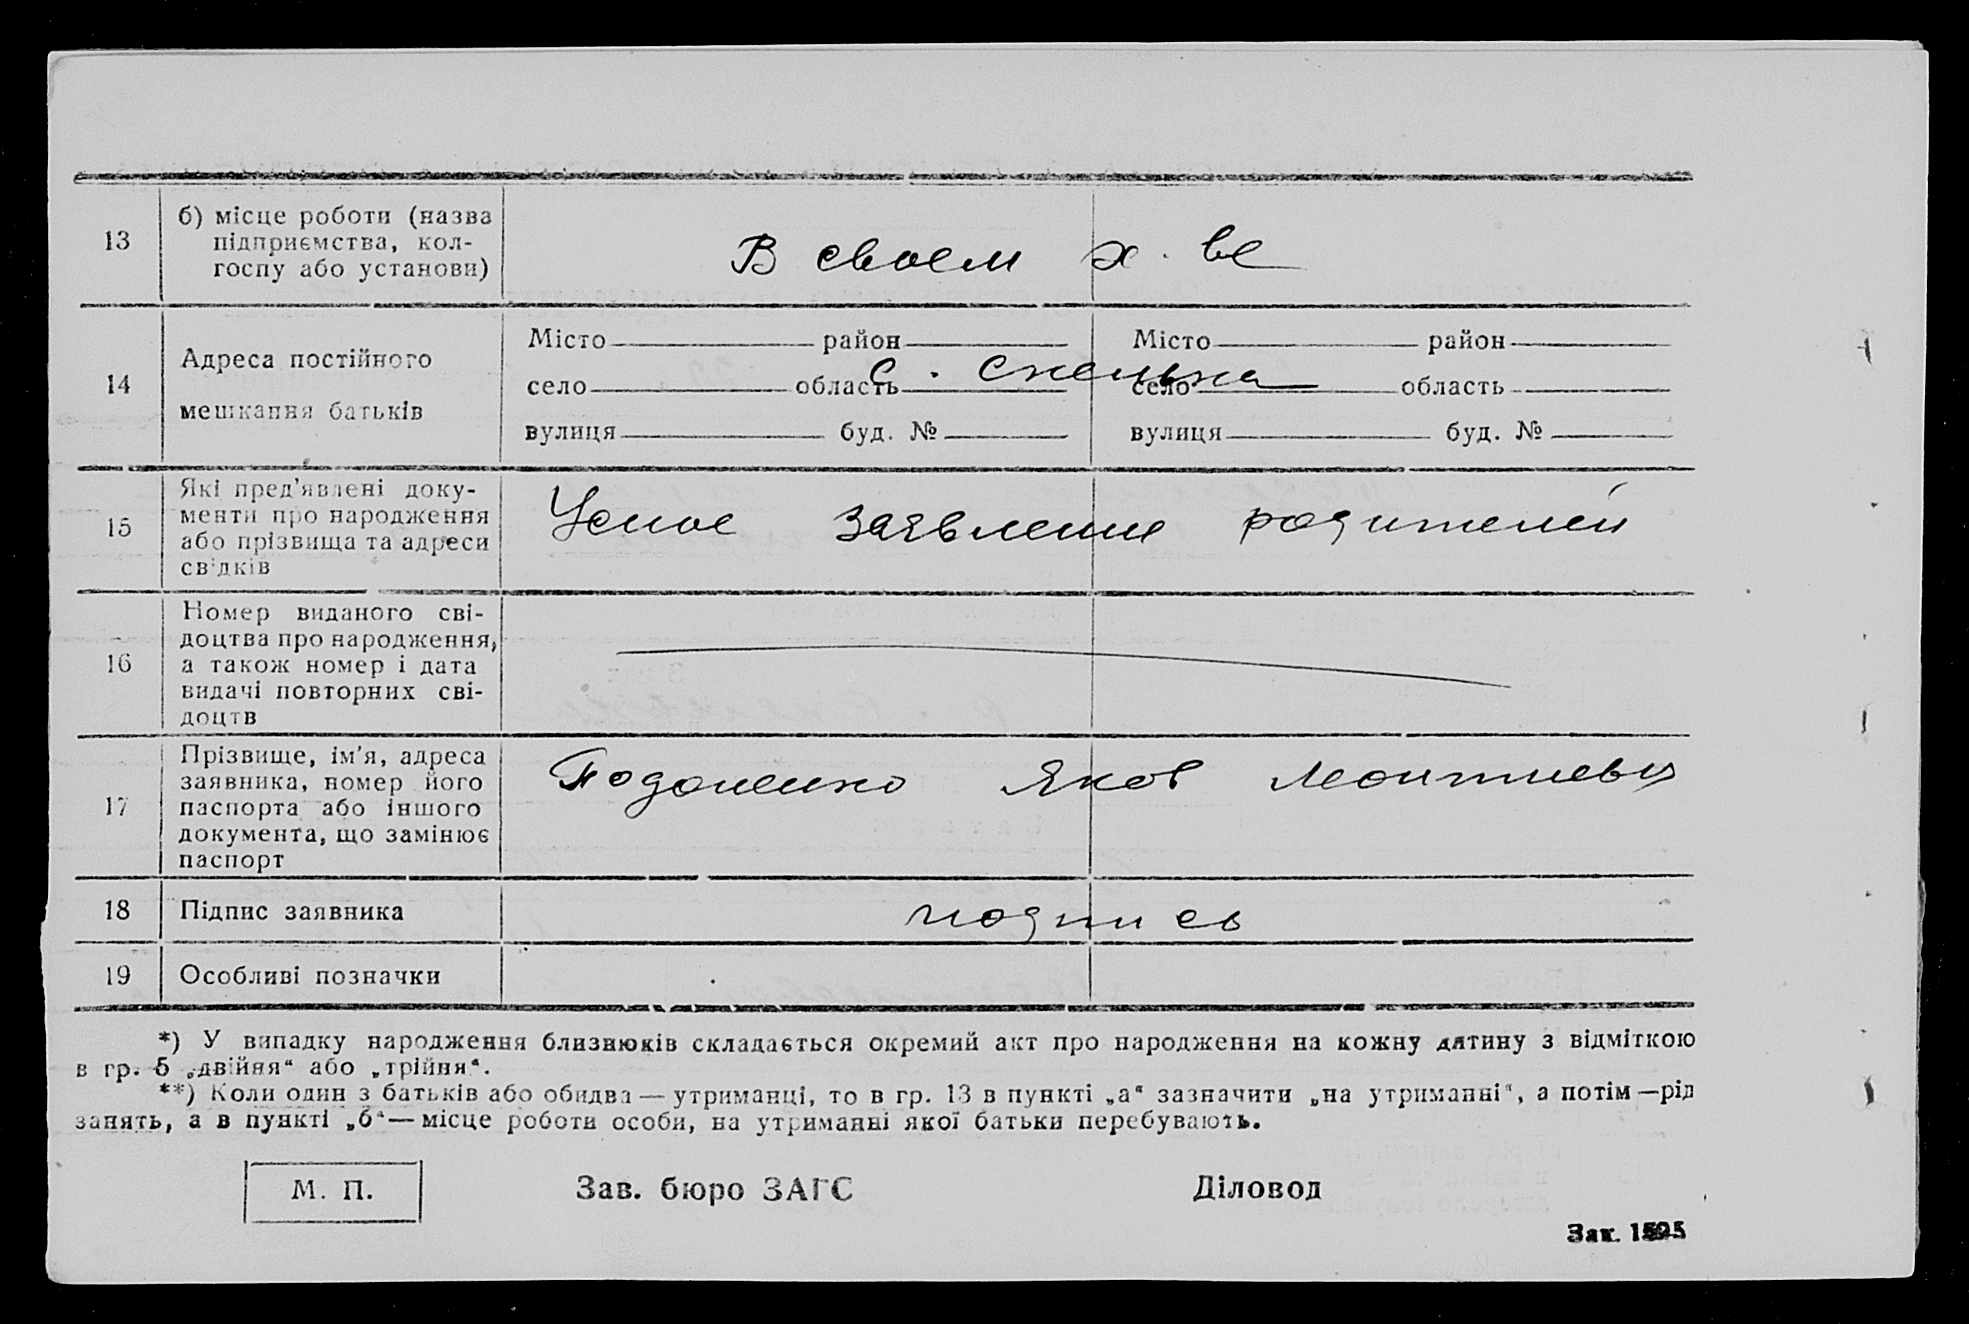 13
б) місце роботи (назва
підприємства, кол-
госпу або установи)
В своем х.ве
14
Адреса постійного
мешкання батьків
Місто район
село область
вулиця буд. №
Місто район
село область
вулиця буд. №
с. Спелька
15
Які пред'явлені доку-
менти про народження
або прізвища та адреси
свідків
Усное заявление родителей
16
Номер виданого сві-
доцтва про народження,
а також номер і дата
видачі повторних сві-
доцтв
17
Прізвище, ім'я, адреса
заявника, номер його
паспорта або іншого
документа, що замінює
паспорт
Яков Леонтиевич
18
Підпис заявника
подпись
19
Особливі позначки
*) У випадку народження близнюків складається окремий акт про народження на кожну дитину з відміткою
в гр. 5 „двійня“ або „трійня“.
**) Коли один з батьків або обидва — утриманці, то в гр. 13 в пункті „а“ зазначити „на утриманні“, а потім — рід
занять, а в пункті „б“ — місце роботи особи, на утриманні якої батьки перебувають.
М. П.
Зав. бюро ЗАГС
Діловод
Зак. 1595